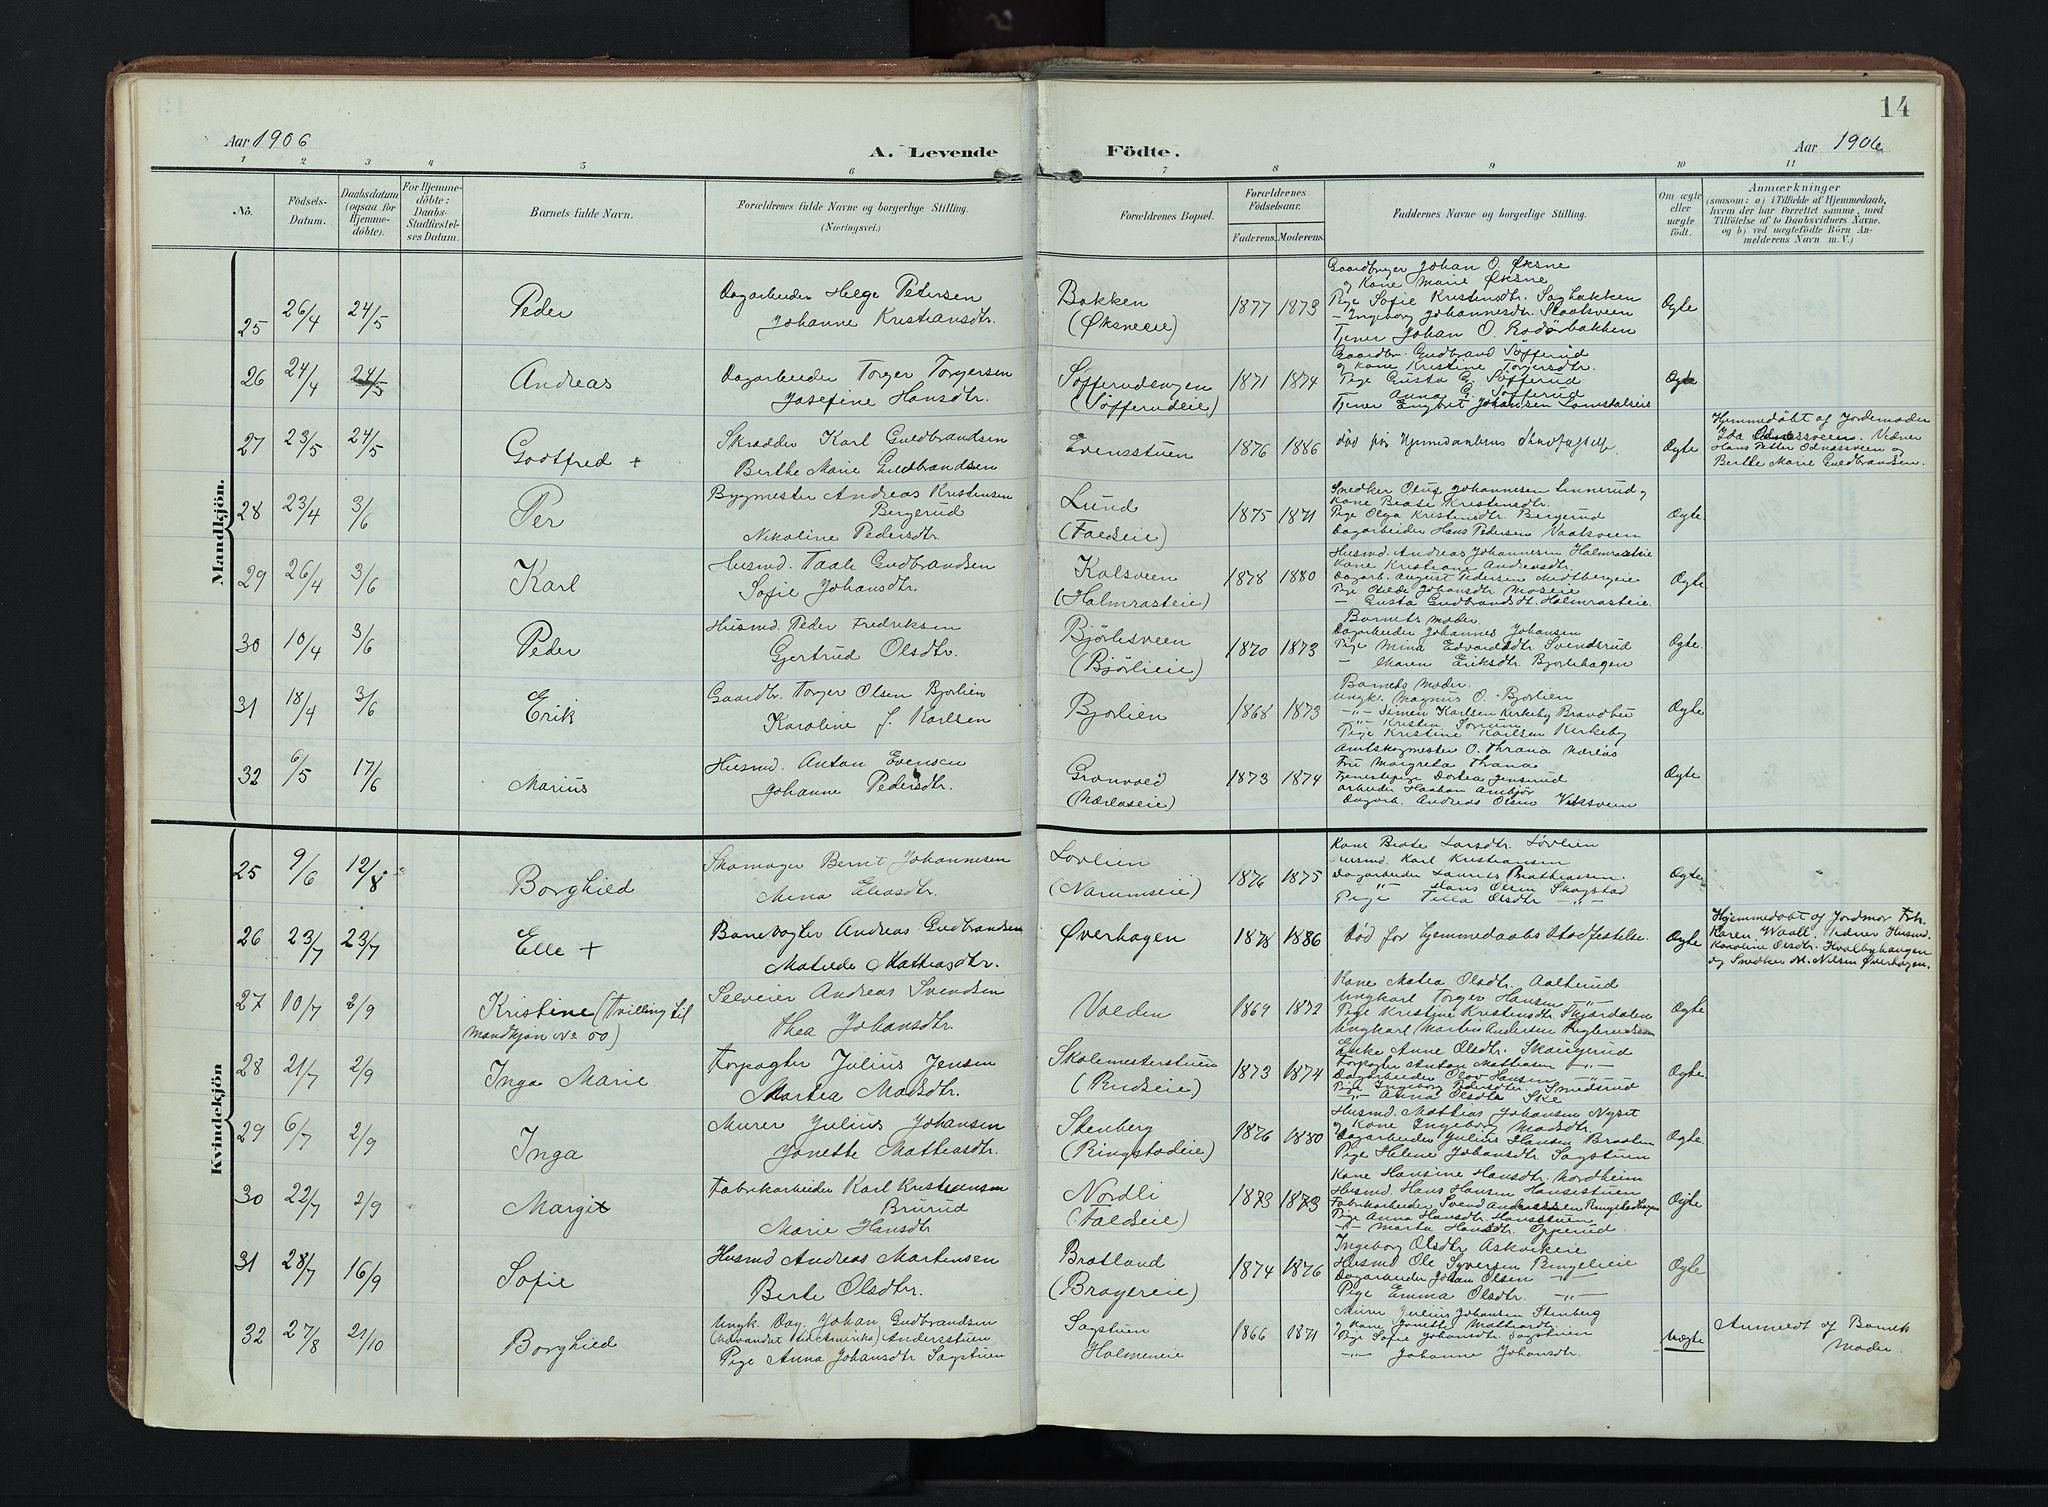 14
Aar 1906
A. Levende
Födte.
Aar 1906
1 2 3 4 5 6 7 8 9 10 11
No.
Födsels-Datum.
Daabsdatum (ogsaa for Hjemme-döbte).
For Hjemme-döbte: Daabs-Stadfæstel-ses Datum.
Barnets fulde Navn.
Forældrenes fulde Navne og borgerlige Stilling.
(Næringsvei.)
Forældrenes Bopæl.
Forældrenes Födselsaar.
Faderens. Moderens.
Faddernes Navne og borgerlige Stilling.
Om ægte eller uægte født.
Anmærkninger
(saasom: a) i Tilfælde af Hjemmedaab,
hvem der har forrettet samme, med
Tilföielse af to Daabsvidners Navne.
og b) ved uægtefödte Börn An-
melderens Navn m. V.)
Mandkjön.
25 26/4 24/5 Peder
Dagarbeider Helge Petersen
Johanne Kristiansdtr.
Bakken
(Øksneeie)
1877 1873
Gaardbruger Johan O. Øksne
og Kone Marie Øksne
Pige Sofie Kristensdtr. Sagbakken
- Ingeborg Johannesdtr.
Tjener Johan O.
Ægte
26 24/4 24/5 Andreas
Dagarbeider Torger Torgersen
Josefine Hansdtr.
Søfferudengen
(Søfferudeie)
1871 1874
Gaardbr. Gudbrand Søfferud
og Kone Kristine Torgersdtr.
Pige Gusta G. Søfferud
Anna G. Søfferud
Tjener Engbret Johansen
Ægte
27 23/5 24/5 Godtfred +
Skrædder Karl Guldbrandsen
Berthe Marie Guldbrandsen
Evensstuen
1876 1886
død før Hjemmedaabens
Ægte
Hjemmedøbt af Jordemoder
Ida Vidner
Hans Petter Odnæsveen og
Berthe Marie Guldbrandsen.
28 23/4 3/6 Per
Bygmester Andreas Kristensen
Bergerud
Nikoline Pedersdtr.
Lund
(Faldseie)
1875 1871
Snedker Oluf Johannesen Linnerud og
Kone Beate Kristensdtr.
Pige Olga Kristensdtr. Bergerud
Dagarbeider Hans Pedersen
Ægte
29 26/4 3/6 Karl
Husmd. Taale Gudbrandsen
Sofie Johansdtr.
Kalsveen
(Halmrasteie)
1878 1880
Husmd. Andreas Johannesen Halmrasteie
Kone Kristiane Andreasdtr.
Dagarb. August Pedersen
Pige Johansdtr. Moseie
- Gusta Gudbrandsdt. Halmrasteie.
Ægte
30 10/4 3/6 Peder
Husmd. Peder Fredriksen
Gjertrud Olsdtr.
Bjørlisveen
(Bjørlieie)
1870 1873
Barnets Moder
Dagarbeider Johannes Johansen
Pige Mina Edvardsdtr Svendsrud
- Maren Eriksdtr Bjorlihagen
Ægte.
31 18/4 3/6 Erik
Gaardbr. Torger Olsen Bjorlien
Karoline J. Karlsen
Bjorlien
1868 1873
Barnets Moder
Ungk. Magnus O. Bjorlien
-"- Simen Karlsen Kirkeby Brandbu
-"- Kristen Sorum
Pige Kristine Karlsen Kirkeby
Ægte
32 6/5 17/6 Marius
Husmd. Anton Evensen
Johanne Pedersdtr.
Grønvold
(Mærlaseie)
1873 1874
Amtskogmester O. Thrana
Fru Margreta Thrana
Tjenestepige Dortea Jenserud
Arbeider Haakon
Dagarb. Andreas Olsen
Ægte
Kvindekjön
25 9/6 12/8 Borghild
Skomager Bernt Johannesen
Mina Eliasdtr.
Lovlien
(Narumseie)
1876 1875
Kone Beate Larsdtr. Løvlien
Husmd. Karl Kristiansen
Dagarbeider Laurits Mathiassen.
-"- Hans Olsen Skogstad
Pige Tilla Olsdtr -"-
Ægte
26 23/7 23/7 Elle +
Banevogter Andreas Gudbrandsen
Matilde Mathiasdtr.
Øverhagen
1878 1886
Død før hjemmedaabs Stadfestelse.
Ægte
Hjemmedøbt af Jordmor Frk.
Karen Waall. Vidner Husmd.
Karoline Olsdtr. Hvalbyhaugen
og Snedker M. Nilsen Øverhagen.
27 10/7 2/9 Kristine (Tvilling til
Mandkjøn No 50)
Selveier Andreas Svendsen
Thea Johansdtr.
Volden
1869 1872
Kone Matea Olsdtr. Aalterud
Ungkarl Torger Hansen -"-
Pige Kristine Kristensdtr. Skjordalen
Ungkarl Martin Andersen
Ægte
28 21/7 2/9 Inga Marie
Forpagter Julius Jensen
Martea Madsdtr.
Skolemesterstuen
(Rudseie)
1873 1874
Enke Anne Olsdtr. Skaugerud
Forpagter Anton Mathiasen -"-
Dagarbeider Olav Hansen -"-
Pige Ingeborg Pedersdtr. Smedsrud
-"- Anna Olsdtr
Ægte
29 6/7 2/9 Inga
Murer Julius Johansen
Jonette Mathiasdtr.
Stenberg
(Ringstadeie)
1876 1880
Husmd. Mathias Johansen Nyset
og Kone Ingeborg Madsdtr.
Dagarbeider Julius Hansen Braaten
Pige Helene Johansdtr Sagstuen
Ægte
30 22/7 2/9 Margit
Fabrikarbeider Karl Kristiansen
Brurud
Marie Hansdtr.
Nordli
(Faldseie)
1873 1873
Kone Hansine Hansdtr. Nordheim
Husmd. Hans Hansen Hansestuen
Fabrikarbeider Svend Andreassen Ringstadhagen
Pige Anna Hansdtr. Hansestuen
-"- Marta Hansdtr. Opperud
Ægte
31 28/7 16/9 Sofie
Husmd Andreas Martinsen
Berte Olsdtr.
Bratland
(Bragereie)
1874 1876
Ingeborg Olsdtr Askvikeie
Husmd Ole Syversen Ringelieie
Dagarbeider Johan Olsen -"-
Pige Emma Olsdtr. -"-
Ægte
32 27/8 21/10 Borghild
Ungk. Dag. Johan Gudbrandsen
(udvandret til Amerika) Andersstuen
Pige Anna Johansdtr Sagstuen
Sagstuen
Holmeneie
1866 1871
Murer Julius Johansen Stenberg
og Kone Jonette Mathiasdtr.
Pige Sofie Johansdtr Sagstuen
-"- Johanne Johansdtr.
Uægte
Anmeldt af Barnets
Moder.